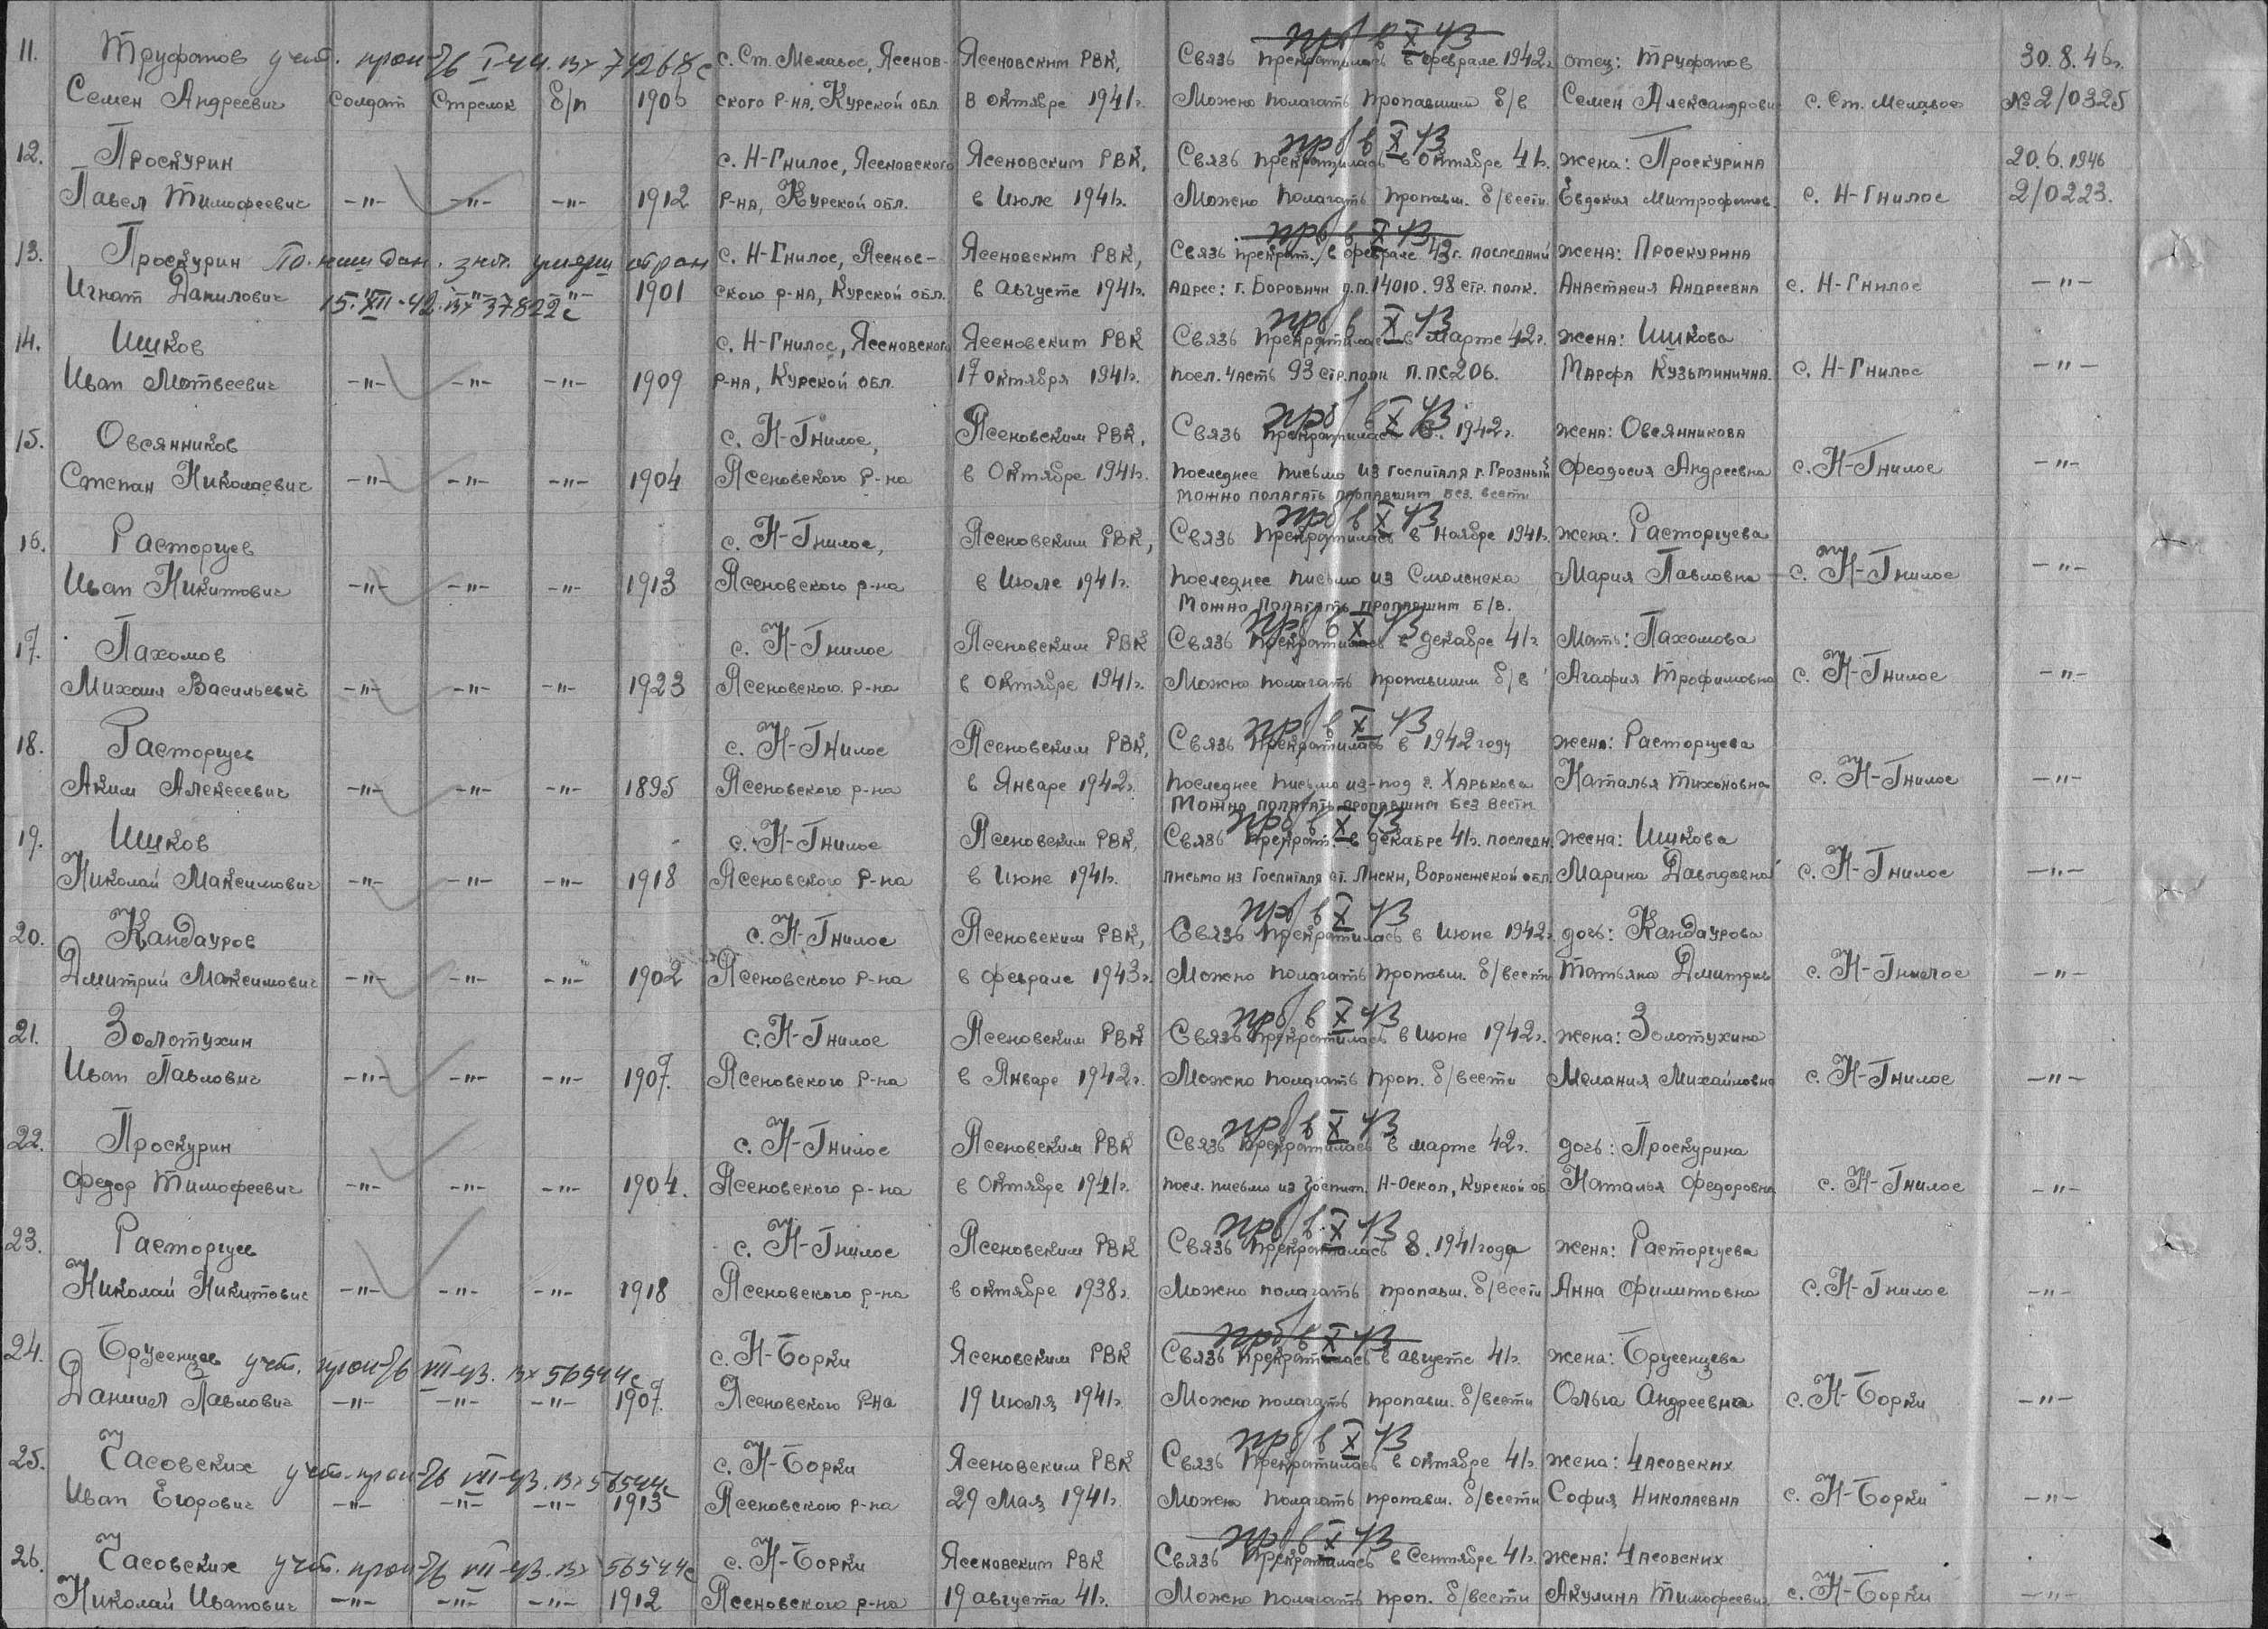 11. Труфанов учт. проп б/в I-44. вх 71268с с. Ст. Мелавое, Ясенов- Ясеновским РВК, Связь прекратилась в феврале 1942г. отец: Труфанов 30.8.46г.
прб в X 43
Семен Андреевич солдат Стрелок б/п 1906 ского р-на, Курской обл. в октябре 1941г. Можно полагать пропавшим б/в Семен Александрович с. Ст. Мелавое №2/0325
12. Проскурин с. Н-Гнилое, Ясеновского Ясеновским РВК, Связь прекратилась в октябре 41г. жена: Проскурина 20.6.1946
прб в X 43
Павел Тимофеевич -"- -"- -"- 1912 р-на, Курской обл. в Июле 1941г. Можно полагать пропавш. б/вести Евдокия Митрофанов. с. Н-Гнилое 2/0223.
13. Проскурин По. наш дан. знт. умерш от ран с. Н-Гнилое, Ясенов- Ясеновским РВК, Связь прекрат. в феврале 43г. последний жена: Проскурина
прб в X 43
Игнат Данилович 15.XII-42. вх 37822с 1901 ского р-на, Курской обл. в Августе 1941г. адрес: г. Боровичи п.п. 14010. 98 стр. полк. Анастасия Андреевна с. Н-Гнилое -"-
14. Ишков с. Н-Гнилое, Ясеновского Ясеновским РВК Связь прекратилась в Марте 42г. жена: Ишкова
прб в X 43
Иван Матвеевич -"- -"- -"- 1909 р-на, Курской обл. 17 октября 1941г. посл. часть 93 стр.полк п.п.с 206. Марфа Кузьминична. с. Н-Гнилое -"-
15. Овсянников с. Н-Гнилое, Ясеновским РВК, Связь прекратилась в. 1942г. жена: Овсянникова
прб в X 43
Степан Николаевич -"- -"- -"- 1904 Ясеновского р-на в Октябре 1941г. последнее письмо из госпиталя г. Грозный Феодосия Андреевна с. Н-Гнилое -"-
можно полагать пропавшим без вести
16. Расторгуев с. Н-Гнилое, Ясеновским РВК, Связь прекратилась в Ноябре 1941г. жена: Расторгуева
прб в X 43
Иван Никитович -"- -"- -"- 1913 Ясеновского р-на в Июле 1941г. последнее письмо из Смоленска Мария Павловна с. Н-Гнилое -"-
Можно полагать пропавшим б/в.
17. Пахомов с. Н-Гнилое Ясеновским РВК Связь прекратилась в декабре 41г. Мать: Пахомова
прб в X 43
Михаил Васильевич -"- -"- -"- 1923 Ясеновского р-на в октябре 1941г. Можно полагать пропавшим б/в Агафия Трофимовна с. Н-Гнилое -"-
18. Расторгуев с. Н-Гнилое Ясеновским РВК, Связь прекратилась в 1942 году жена: Расторгуева
прб в X 43
Аким Алексеевич -"- -"- -"- 1895 Ясеновского р-на в Январе 1942г. последнее письмо из-под г. Харькова Наталья Тихоновна с. Н-Гнилое -"-
Можно полагать пропавшим без вести
19. Ишков с. Н-Гнилое Ясеновским РВК, Связь прекрат. в декабре 41г. последн. жена: Ишкова
прб в X 43
Николай Максимович -"- -"- -"- 1918 Ясеновского р-на в Июне 1941г. письмо из Госпиталя ст. Лиски, Воронежской обл. Марина Давыдовна с. Н-Гнилое -"-
20. Кандауров с. Н-Гнилое Ясеновским РВК, Связь прекратилась в Июне 1942г. дочь: Кандаурова
прб в X 43
Дмитрий Максимович -"- -"- -"- 1902 Ясеновского р-на в феврале 1943г. Можно полагать пропавш. б/вести Татьяна Дмитрие с. Н-Гнилое -"-
21. Золотухин с. Н-Гнилое Ясеновским РВК Связь прекратилась в июне 1942г. жена: Золотухина
прб в X 43
Иван Павлович -"- -"- -"- 1907. Ясеновского р-на в Январе 1942г. Можно полагать проп. б/вести Мелания Михайловна с. Н-Гнилое -"-
22. Проскурин с. Н-Гнилое Ясеновским РВК Связь прекратилась в марте 42г. дочь: Проскурина
прб в X 43
Федор Тимофеевич -"- -"- -"- 1904. Ясеновского р-на в Октябре 1941г. посл. письмо из госпит. Н-Оскол, Курской об. Наталья Федоровна с. Н-Гнилое -"-
23. Расторгуев с. Н-Гнилое Ясеновским РВК Связь прекратилась в. 1941 года жена: Расторгуева
прб в X 43
Николай Никитович -"- -"- -"- 1918 Ясеновского р-на в октябре 1938г. Можно полагать пропавш. б/вести Анна Филитовна с. Н-Гнилое -"-
24. Брусенцев учт. проп б/в VIII-43. вх 56544с с. Н-Борки Ясеновским РВК Связь прекратилась в августе 41г. жена: Брусенцева
прб в X 43
Даниил Павлович -"- -"- -"- 1907. Ясеновского р-на 19 июля 1941г. Можно полагать пропавш. б/вести Ольга Андреевна с. Н-Борки -"-
25. Часовских учт. проп б/в VIII-43. вх 56544с с. Н-Борки Ясеновским РВК Связь прекратилась в октябре 41г. жена: Часовских
прб в X 43
Иван Егорович -"- -"- -"- 1913 Ясеновского р-на 29 мая 1941г. Можно полагать пропавш. б/вести София Николаевна с. Н-Борки -"-
26. Часовских учт. проп б/в VIII-43. вх 56544с с. Н-Борки Ясеновским РВК Связь прекратилась в Сентябре 41г. жена: Часовских
прб в X 43
Николай Иванович -"- -"- -"- 1912 Ясеновского р-на 19 августа 41г. Можно полагать проп. б/вести Акулина Тимофеевн. с. Н-Борки -"-